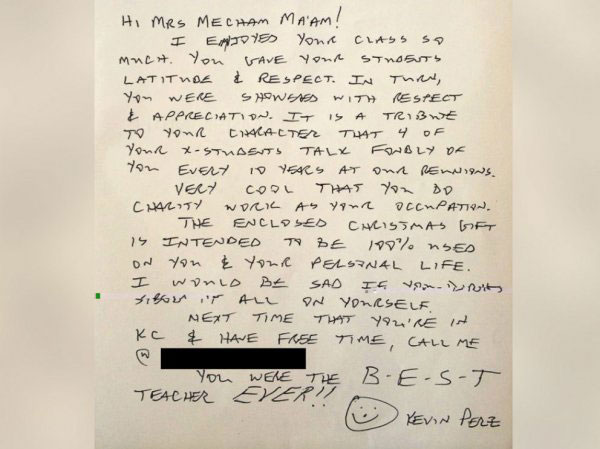 HI MRS MECHAM MA'AM!
I ENJOYED YOUR CLASS SO
MUCH. YOU GAVE YOUR STUDENTS
LATITUDE & RESPECT. IN TURN,
YOU WERE SHOWERED WITH RESPECT
& APPRECIATION. IT IS A TRIBUTE
TO YOUR CHARACTER THAT 4 OF
YOUR X-STUDENTS TALK FONDLY OF
YOU EVERY 10 YEARS AT OUR REUNIONS.
VERY COOL THAT YOU DO
CHARITY WORK AS YOUR OCCUPATION.
THE ENCLOSED CHRISTMAS GIFT
IS INTENDED TO BE 100% USED
ON YOU & YOUR PERSONAL LIFE.
I WOULD BE SAD IF YOU
IT ALL ON YOURSELF.
NEXT TIME THAT YOU'RE IN
KC & HAVE FREE TIME, CALL ME
@
YOU WERE THE B-E-S-T
TEACHER EVER!!
KEVIN PERZ